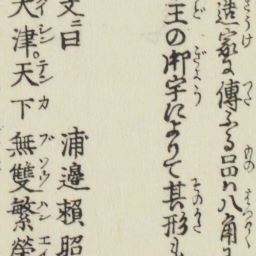 造家に傳ふる品ハ八角
王の御宇によりて其形も
文ニ曰　浦邉頼昭
大津。天下無雙繁榮